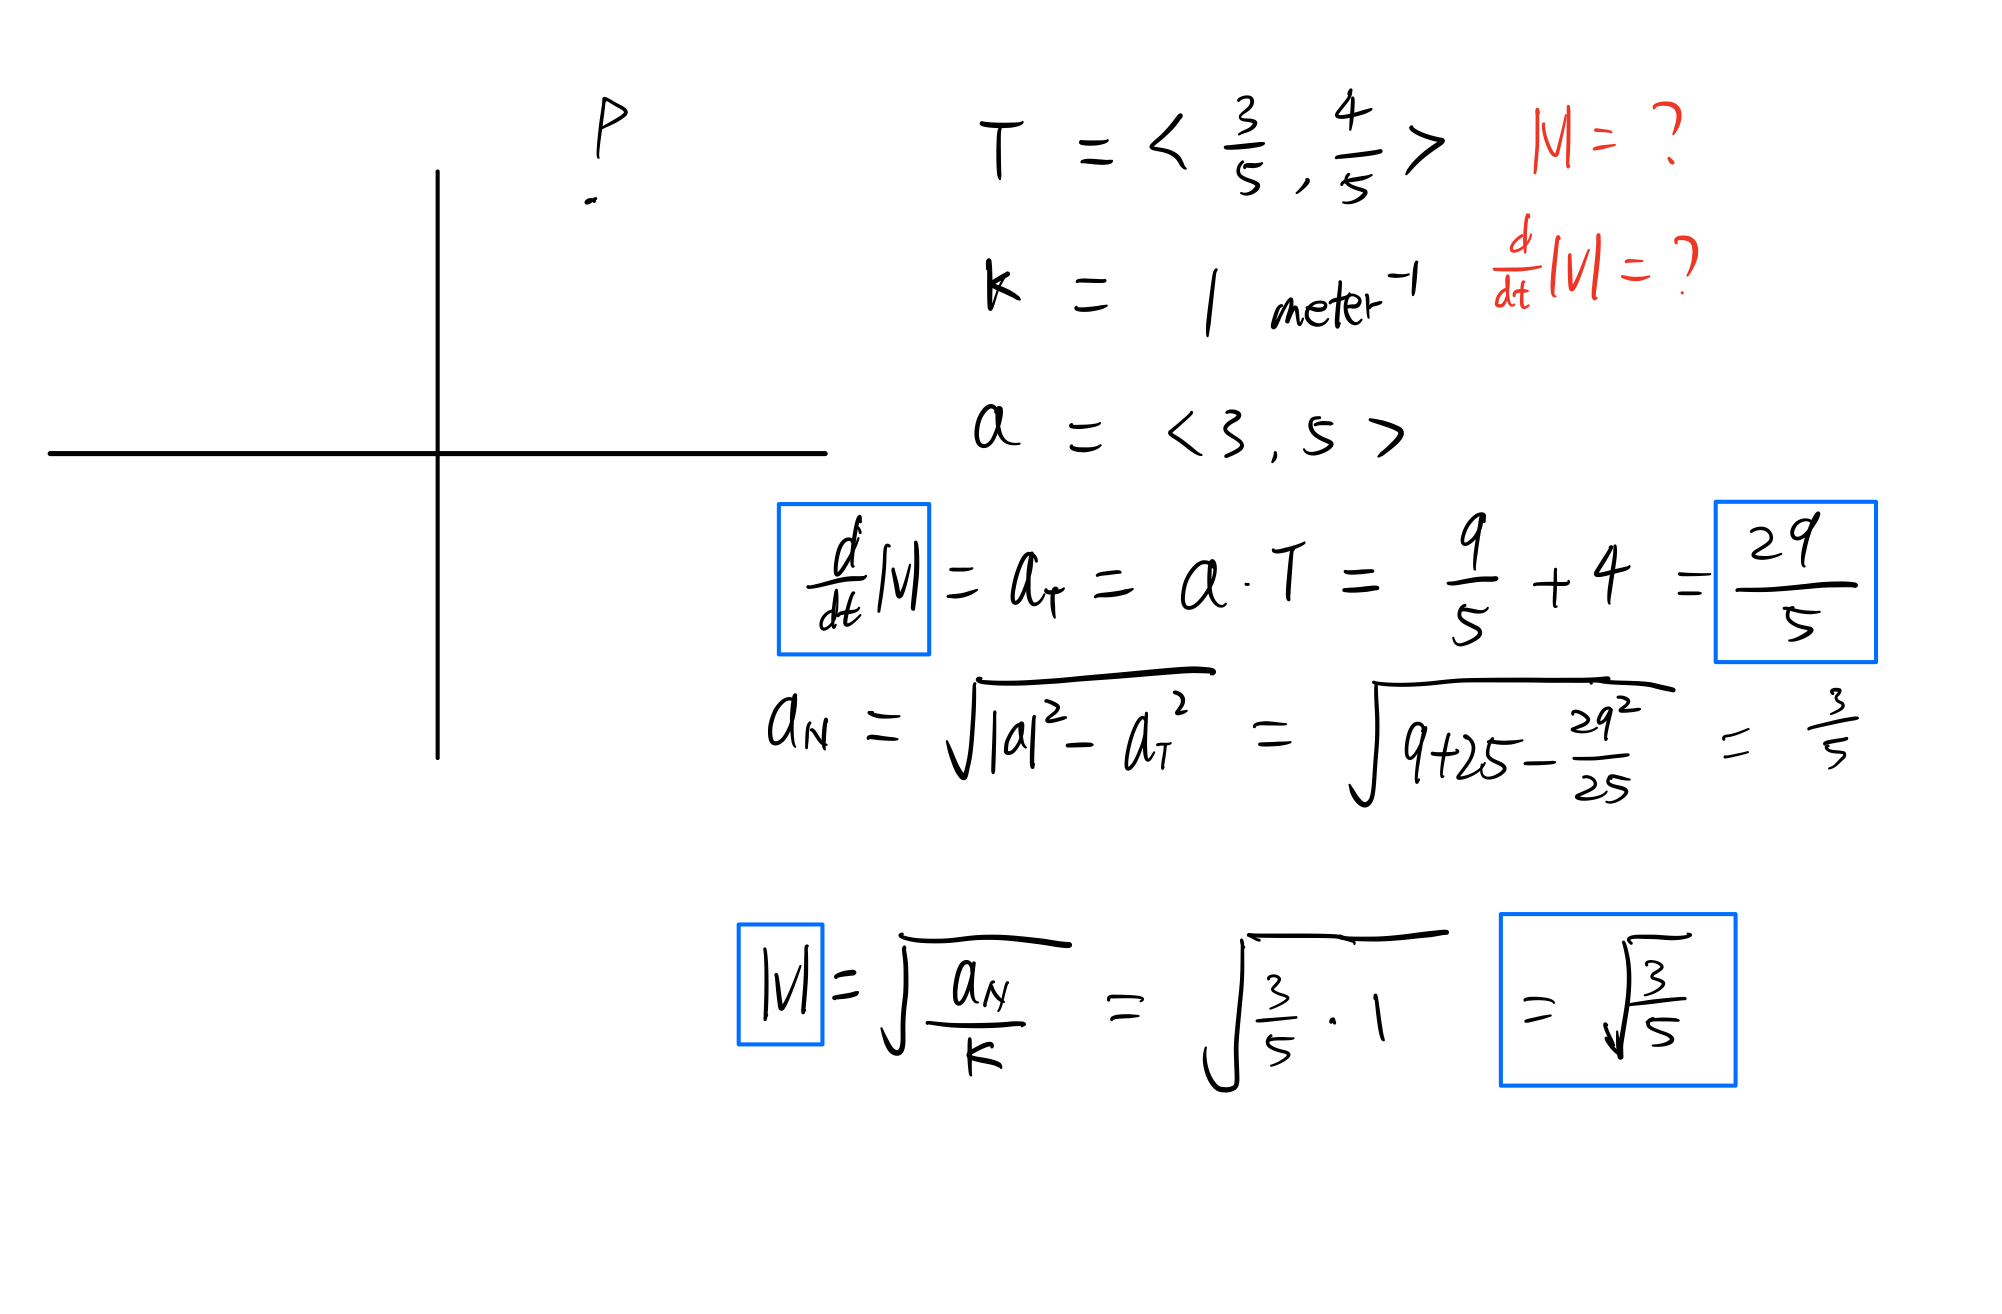 P
T = < 3/5 , 4/5 > |V| = ?
k = 1 meter⁻¹ d/dt |V| = ?
a = < 3 , 5 >
d/dt |V| = a_T = a · T = 9/5 + 4 = 29/5
a_N = √(|a|² - a_T²) = √(9+25 - 29²/25) = 3/5
|V| = √(a_N/k) = √(3/5 · 1) = √(3/5)